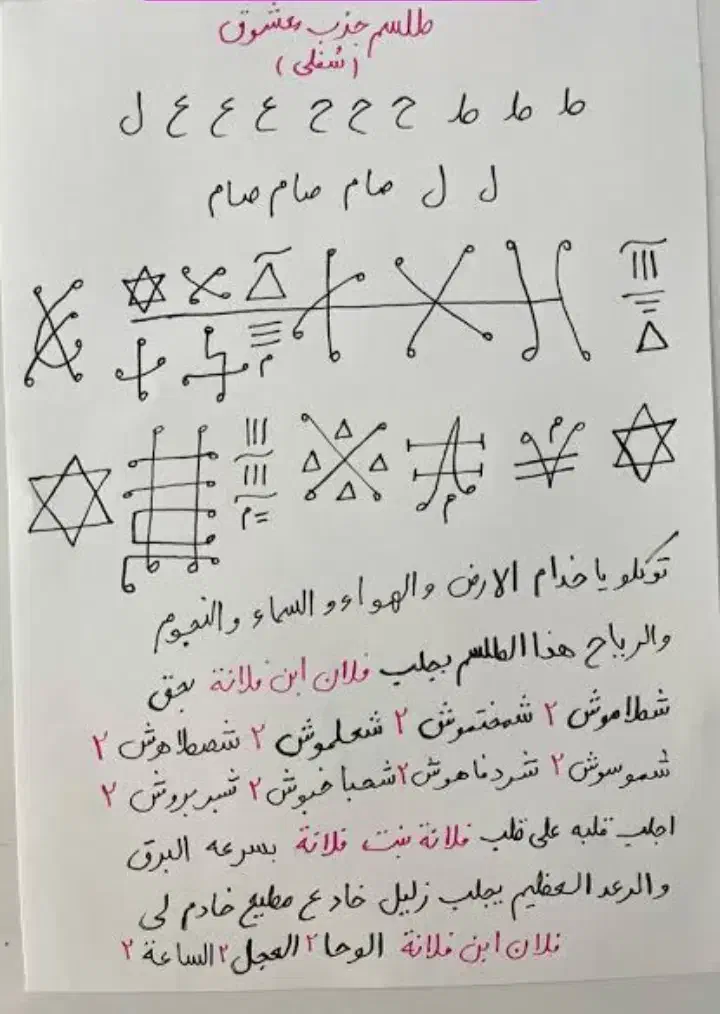 طلسم جذب معشوق
(سُفلي)
ط ط ط ح ح ح ع ع ع ل
ل ل صام صام صام
م
م م
= م
توكلو يا خدام الارض والهواء و السماء والنجوم
والرياح هذا الطلسم بجلب فلان ابن فلانة بحق
شطاموش ٢ شمختموش ٢ شعلموش ٢ شصطاهوش ٢
شموسوش ٢ شردفاهوش ٢ شعباخبوش ٢ شبربروش ٢
اجلب قلبه على قلب فلانة بنت فلانة بسرعه البرق
والرعد العظيم يجلب زليل خادع مطيع خادم لي
فلان ابن فلانة الوحا ٢ العجل ٢ الساعة ٢